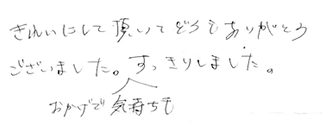 きれいにして頂いてどうもありがとう
ございました。すっきりしました。
おかげで気持ちも